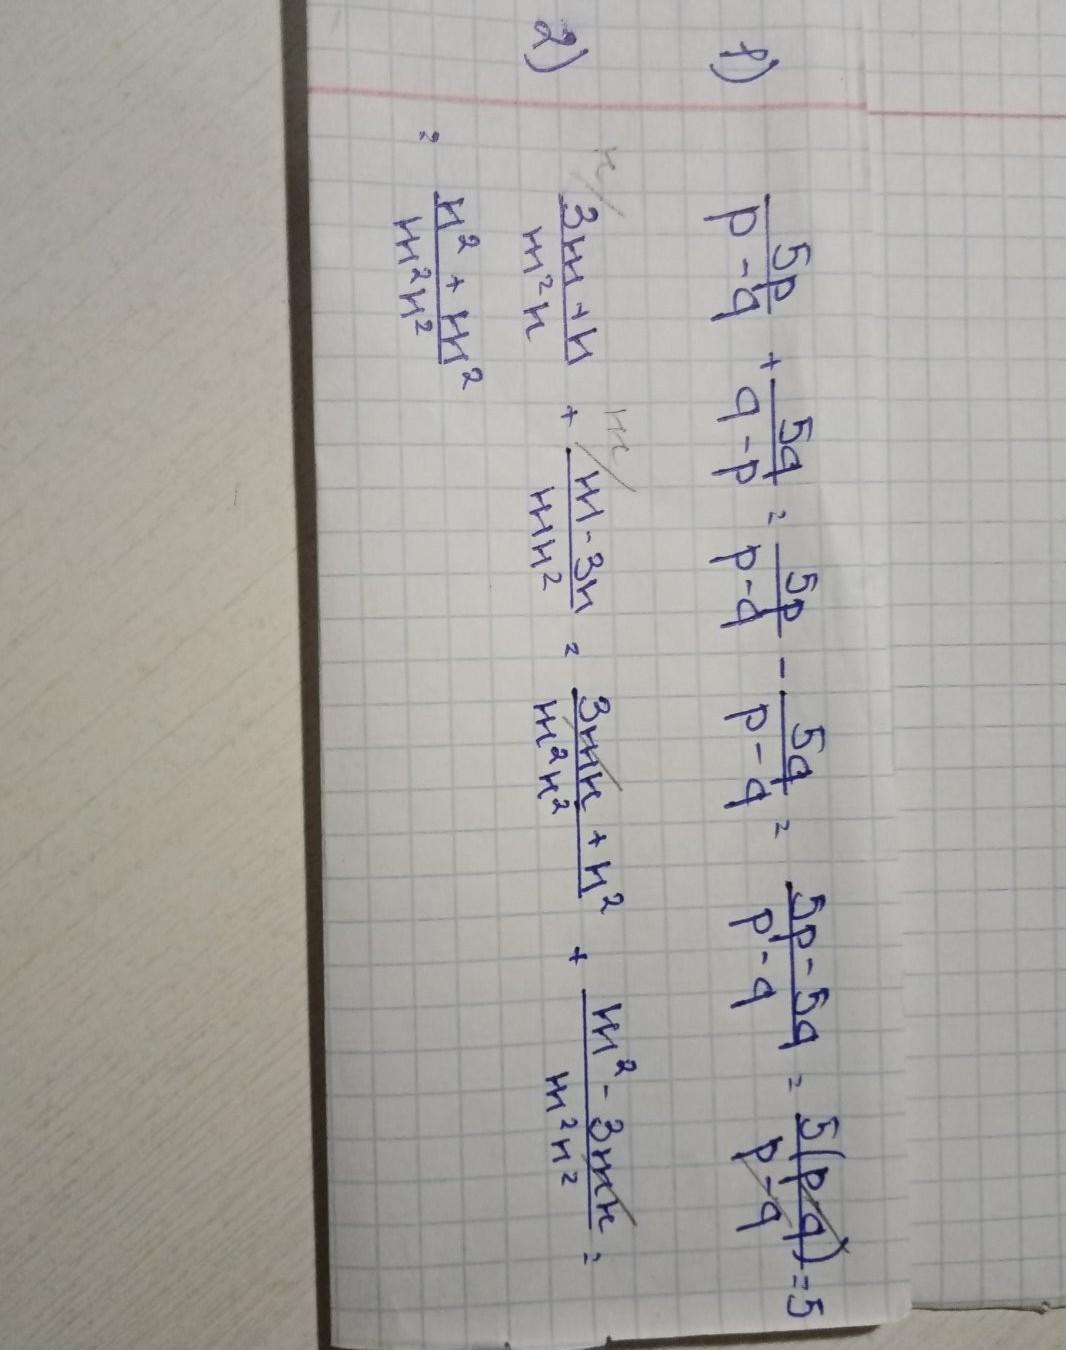 1) 5p/(p-q) + 5q/(q-p) = 5p/(p-q) - 5q/(p-q) = (5p-5q)/(p-q) = 5(p-q)/(p-q) = 5
n/ m/
2) (3m+n)/(m²n) + (m-3n)/(mn²) = (3mn+n²)/(m²n²) + (m²-3mn)/(m²n²) =
= (n²+m²)/(m²n²)